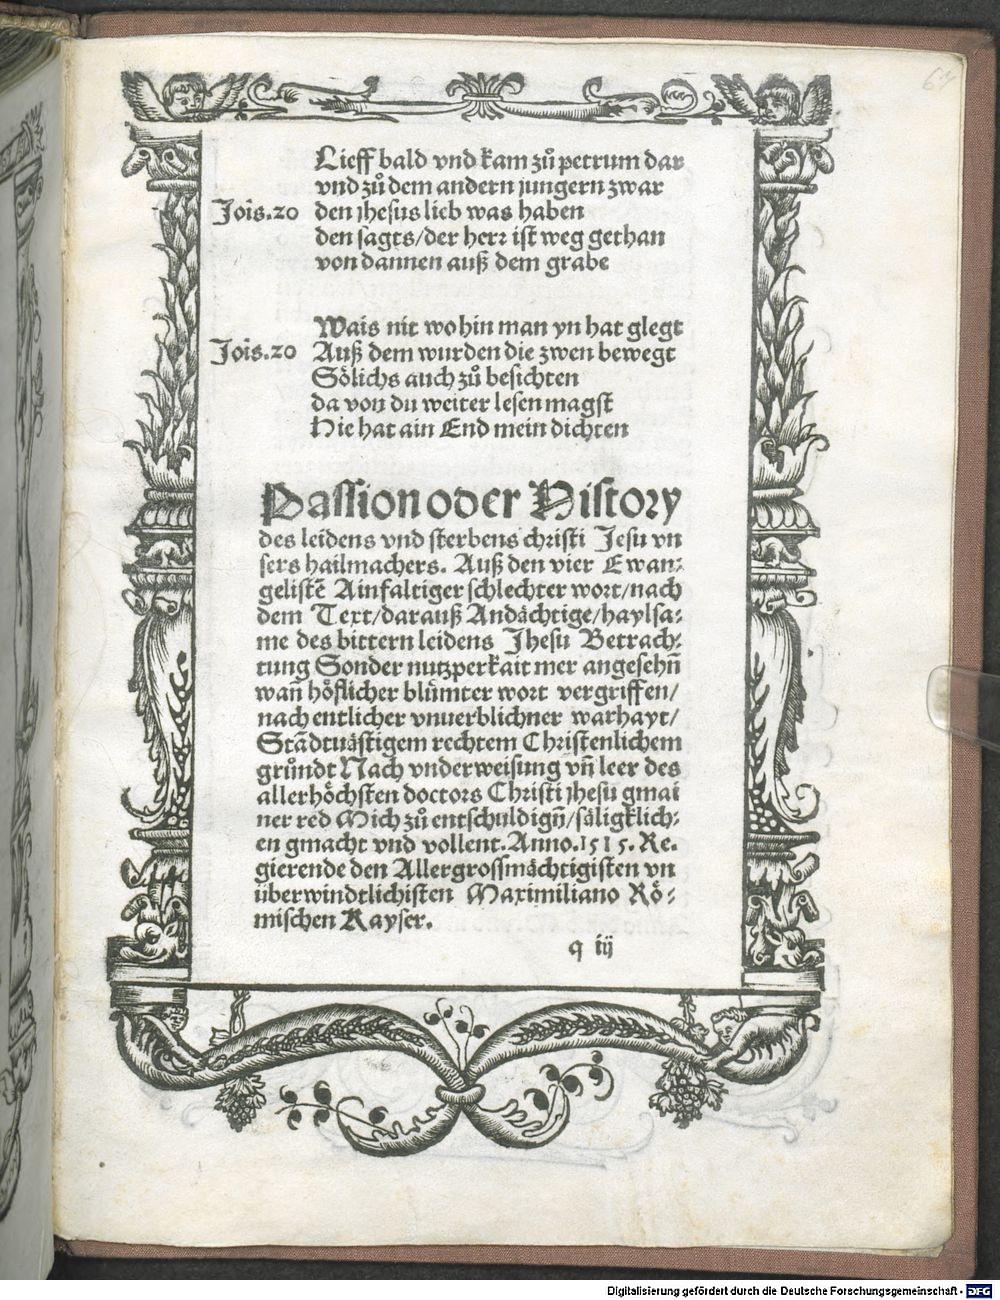 61
Lieff bald vnd kam zuͦ petrum dar
vnd zuͦ dem andern jungern zwar
Jois.20 den jhesus lieb was haben
den sagts/der herr ist weg gethan
von dannen auß dem grabe
Wais nit wohin man yn hat glegt
Jois.20 Auß dem wurden die zwen bewegt
Soͤlichs auch zuͦ besichten
da von du weiter lesen magst
Hie hat ain End mein dichten
Passion oder History
des leidens vnd sterbens christi Jesu vn
sers hailmachers. Auß den vier Ewan⸗
gelistē Ainfaltiger schlechter wort/nach
dem Text/darauß Andaͤchtige/haylsa⸗
me des bittern leidens Jhesu Betrach⸗
tung Sonder nutzperkait mer angesehn̄
wan̄ hoͤflicher bluͤmter wort vergriffen/
nach entlicher vnuerblichner warhayt/
Stādtuaͤstigem rechtem Christenlichem
gruͦndt Nach vnderweisung vn̄ leer des
allerhoͤchsten doctors Christi jhesu gmai
ner red Mich zuͦ entschuldign̄/saͤligklich⸗
en gmacht vnd vollent. Anno.1515. Re⸗
gierende den Allergrossmaͤchtigisten vn
uͤberwindtlichisten Maximiliano Roͤ⸗
mischen Kayser.
q iij
Digitalisierung gefördert durch die Deutsche Forschungsgemeinschaft - DFG